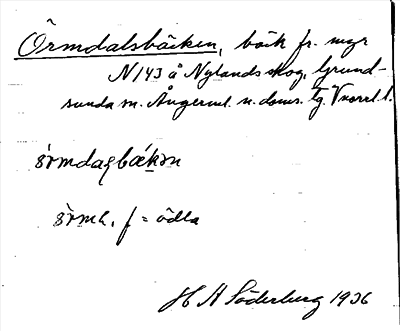 Örmdalsbäcken, bäck fr. myr
N 143 å Nylands skog, Grund-
sunda sn. Ångerml. n. doms. Tg. V. norrl. l.
örmdaɽbækən
örmL. f = ödla
H A Söderberg 1936